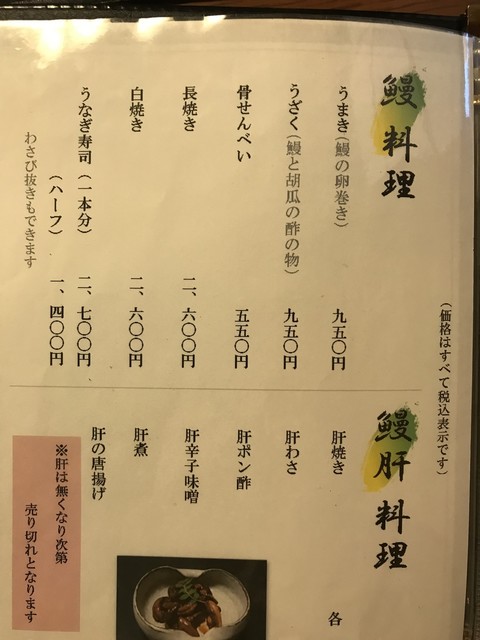 (価格はすべて税込表示です)
鰻料理
うまき(鰻の卵巻き) 九五〇円
うざく(鰻と胡瓜の酢の物) 九五〇円
骨せんべい 五五〇円
長焼き 二、六〇〇円
白焼き 二、六〇〇円
うなぎ寿司(一本分) 二、七〇〇円
(ハーフ) 一、四〇〇円
わさび抜きもできます
鰻肝料理
肝焼き 各
肝わさ
肝ポン酢
肝辛子味噌
肝煮
肝の唐揚げ
※肝は無くなり次第
売り切れとなります